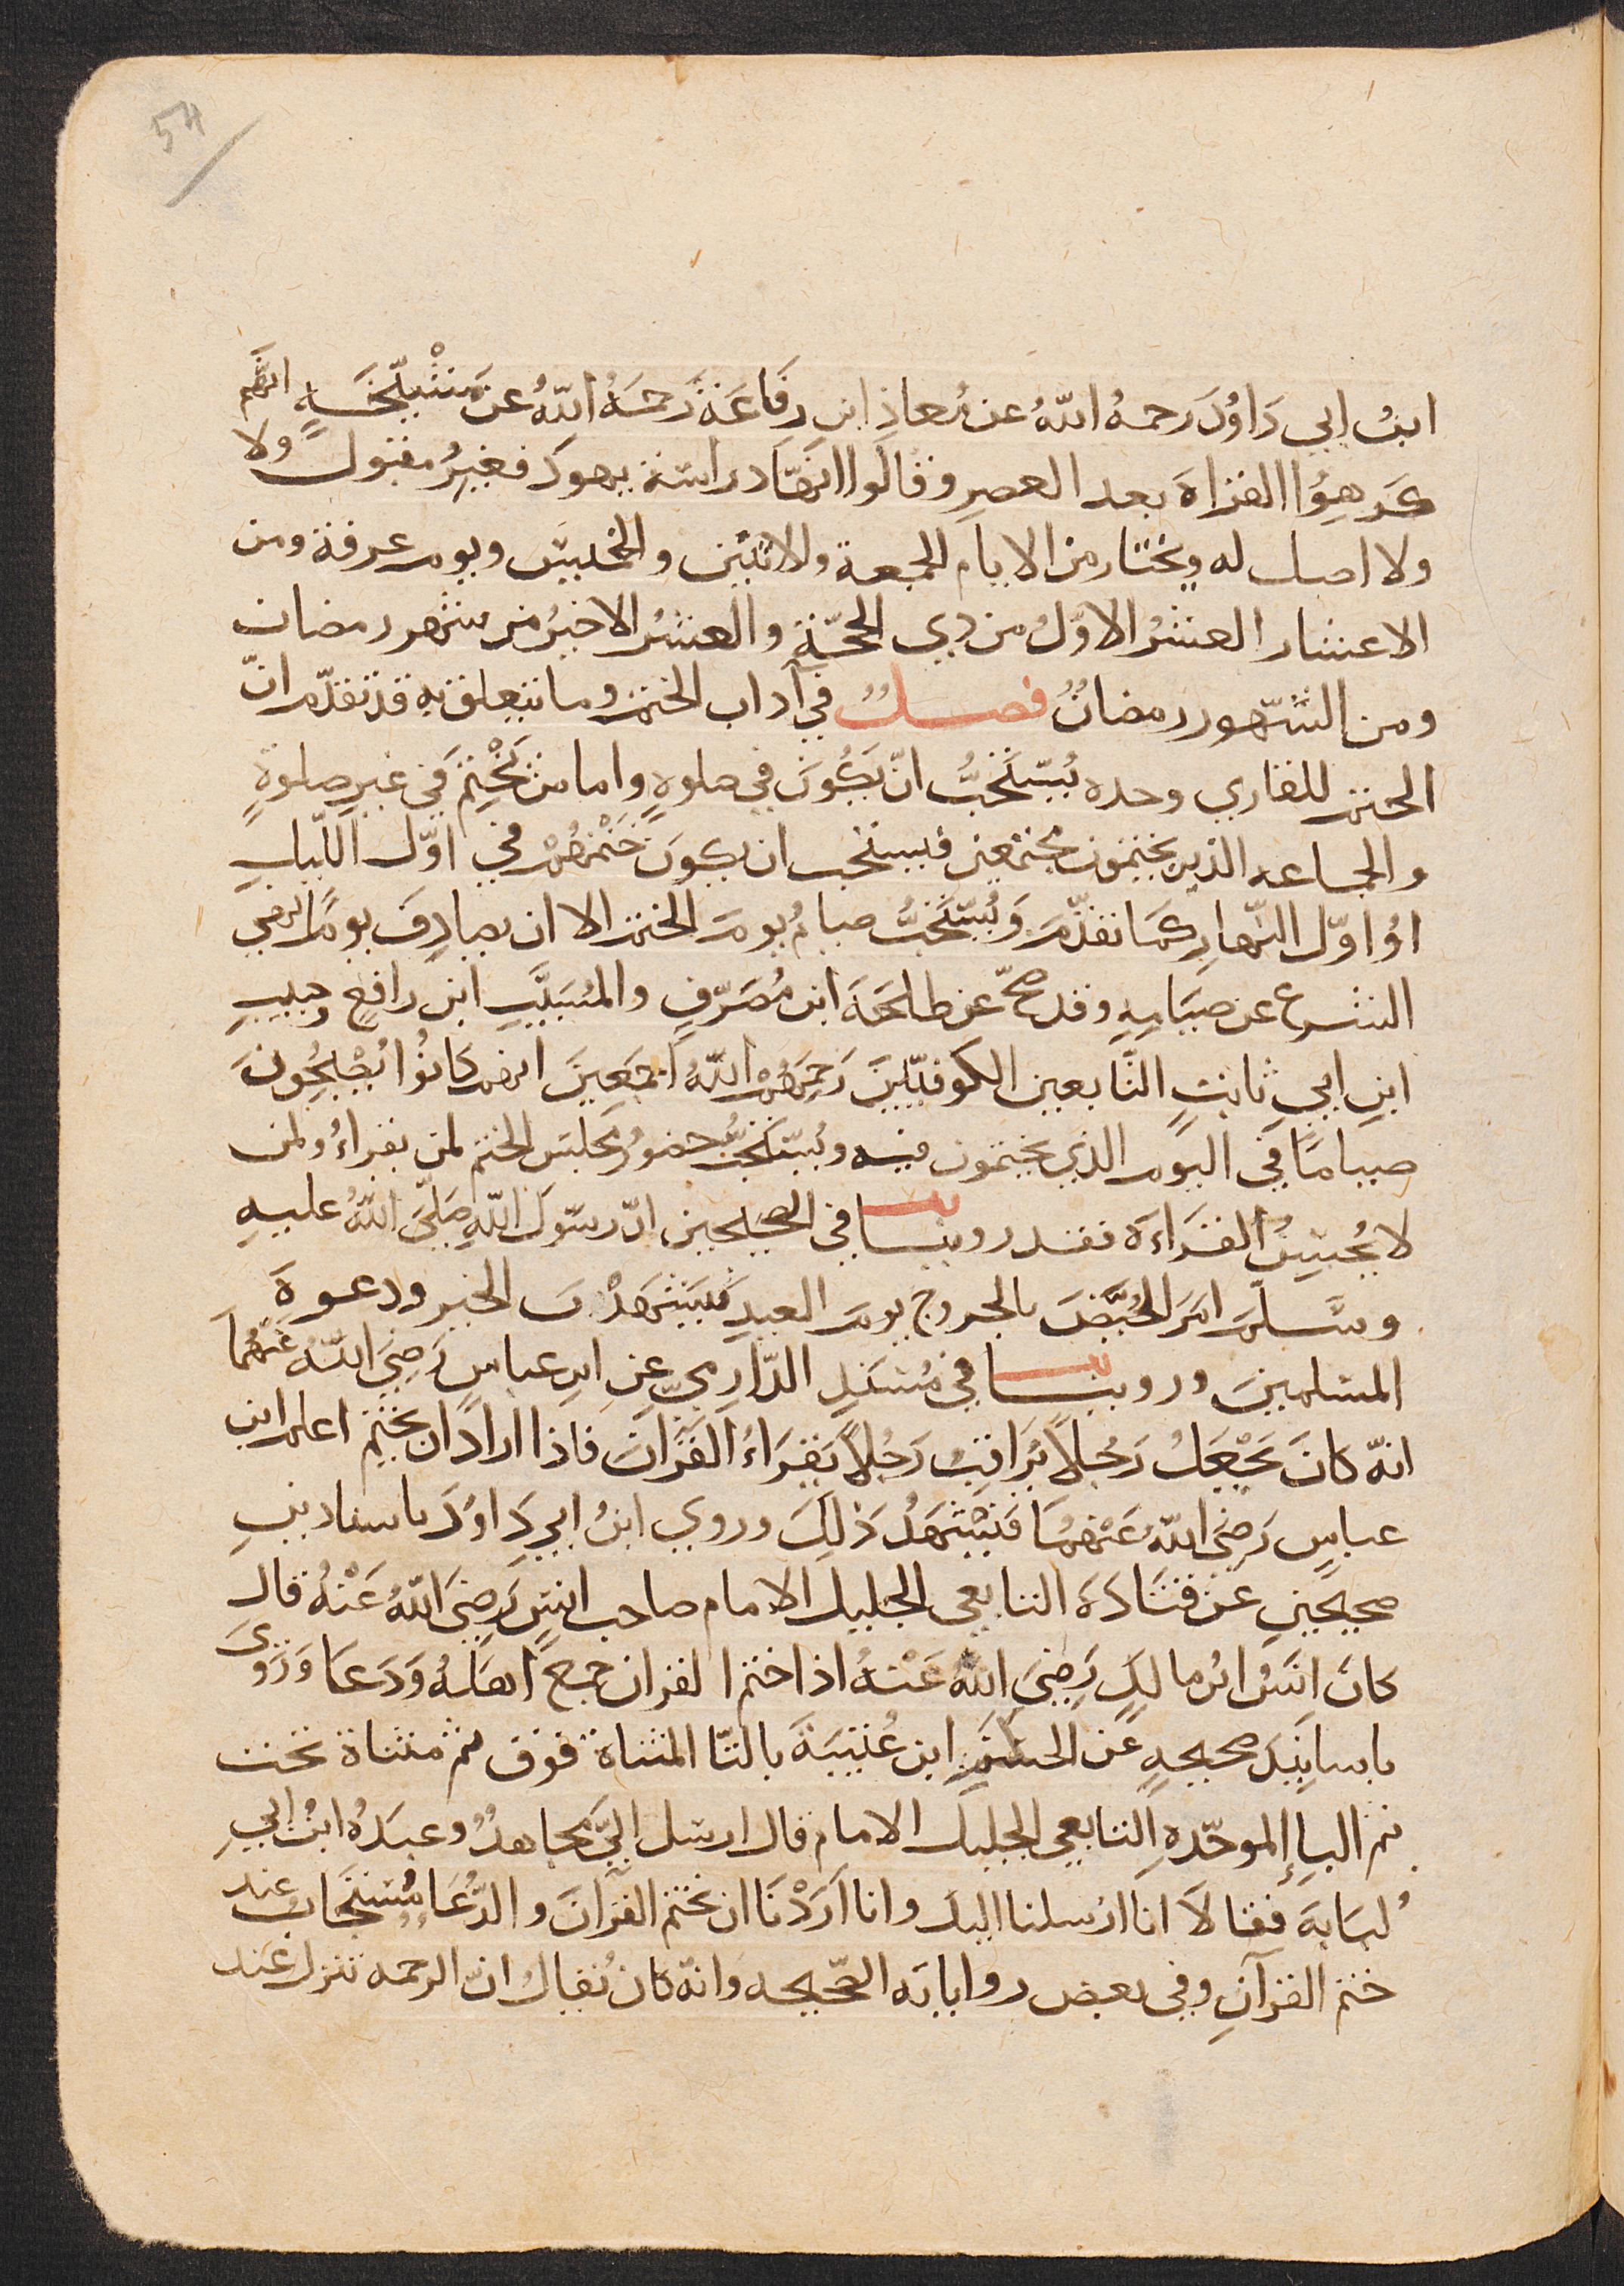 54
ابنُ ابي دَاوُدَ رحمهُ اللهُ عن مُعاذِ ابن رِفَاعَةَ رَحمَهُ اللهُ عن مَشْيَخَةٍ انّهم
كَرِهِوُا القراة بعد العصرِ وقالَوا انهّا دراسَة يهود فغيرُ مقبول ولا
ولا اصل له ويختار من الايام الجمعة والاثنين والخميس ويوم عرفة ومن
الاعشار العشرُ الاوّلُ من ذي الحجّةِ والعشرُ الاخيرُ من شهر رمضان
ومن الشّهور رمضانُ فصلٌ في آداب الختم وما يتعلق به قد تقدّم انّ
الختم للقاري وحده يُستَحَبُّ انّ يَكُونَ في صلوةٍ واما من يَخْتِمُ في غيرِ صلوةٍ
والجماعه الذين يختمون مجتمعين فيستحب ان يكون خَتْمُهُمْ في اوّل اللّيلِ
اوْ اوّل النّهارِ كما تقدّمَ وَيُستَحَبُّ صيامُ يومَ الختم الا ان يصادِفَ يومًا نهي
الشرع عن صيَامِهِ وقد صحّ عن طلحَةَ ابن مُصَرّفٍ والمُسَيَّبِ ابن رافعٍ وحبيبِ
ابنِ ابي ثابتٍ التّابعين الكوفيّين رَحِمَهُمْ اللهُ اجمَعِينَ انهم كانُوْا يُصْبِحُونَ
صياماً في اليوم الذي يختمون فيه ويُستَحَبُّ حضورُ مجلسَ الختم لمن يقراءُ ولمن
لا يُحسِنُ القرَاءَة فقد روينا في الصحيحين انّ رسّولَ اللهِ صَلّيَ اللهُ عليهِ
وسَلّمَ امَرَ الحُيَّضَ بالخروج يومَ العيدِ فيَشْهَدْنَ الخير ودعوةَ
المسلمينَ وروينا في مُسنَدِ الدّارِمِيِّ عنِ ابنِ عباسٍ رَضِيَ اللهُ عَنْهُمَا
انهّ كانَ يَجْعَلُ رَجُلاً يُرَاقِبُ رَجُلاً يَقرَاءُ القرانَ فاذا ارادَ ان يختِمَ اعلم ابن
عباسٍ رَضِيَ اللهُ عَنْهُمَا فَيَشْهَدُ ذلِكَ وروي ابنُ ابي دِاوُدَ باسنادينِ
صحيحينِ عَنْ قَتَادَةَ التابعي الجليل الامام صاحب انسٍ رَضِيَ اللهُ عَنْهُ قال
كانَ انَسُ ابنُ مالِكٍ رَضِيَ اللهُ عَنْهُ اذا ختم القران جمع اهلهُ وَدَعَا وَرَوَىَ
باسانيدَ صحيحهٍ عَن الحكَمِ ابن عُتَيبَةَ بالتّا المثناة فوق ثم مثناة تحت
ثم الباءِ الموحّدهِ التابعي الجليل الامام قال ارسل اليَّ مجاهدٌ وعبدةُ ابنُ ابي
لُبَابةَ فقالاَ انا ارْسلنا اليك وانا ارَدْنَا ان نختم القرآنَ والدُّعَاءِ مُستجَاب عند
ختم القرآنِ وفي بعض رواياته الصّحيحه وَانّهُ كانَ يُقالُ انّ الرحمه تنزل عند